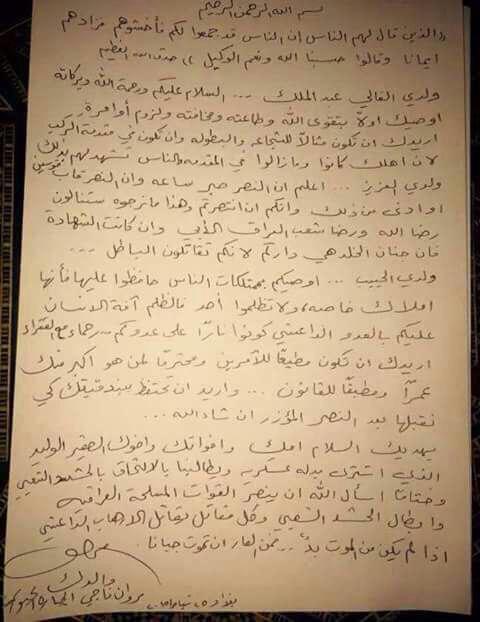 بسم الله الرحمن الرحيم
«الذين قال لهم الناس ان الناس قد جمعوا لكم فأخشوهم فزادهم
ايمانا وقالوا حسبنا الله ونعم الوكيل» صدق الله العظيم
ولدي الغالي عبد الملك ... السلام عليكم ورحمة الله وبركاته
اوصيك اولاً بتقوى الله وطاعته ومخافته ولزوم أوامره
اريدك ان تكون مثالاً للشجاعه والبطوله وان تكون في مقدمة الركب
لان اهلك كانوا ومازالوا في المقدمه والناس تشهد لهم بذلك
ولدي العزيز ... اعلم ان النصر صبر ساعه وان النصر قاب قوسين
او ادنى من ذلك وانكم ان انتصرتم وهذا مانرجوه ستنالون
رضا الله ورضا شعب العراق الأبي وان كانت الشهادة
فان جنان الخلد هي داركم لانكم تقاتلون الباطل ...
ولدي الحبيب ... اوصيكم بممتلكات الناس حافظوا عليها فأنها
املاك خاصه، ولا تظلموا أحد فالظلم آفة الانسان
عليكم بالعدو الداعشي كونوا ناراً على عدوكم .. رحماء مع الفقراء
اريدك ان تكون مطيعاً للآمرين ومحترماً لمن هو اكبر منك
عمراً ومطبقاً للقانون ... واريد ان تحتفظ ببندقيتك كي
نقبلها بعد النصر المؤزر ان شاء الله ...
يهديك السلام امك واخواتك واخوك الصغير الوليد
الذي اشترى بدله عسكريه ويطالبنا بالالتحاق بالحشد الشعبي
وختاماً أسأل الله ان ينصر القوات المسلحة العراقيه
وابطال الحشد الشعبي وكل مقاتل يقاتل الارهاب الداعشي
اذا لم يكن من الموت بدٌ .. فمن العار ان تموت جبانا.
والدك
مروان ناجي
بغداد